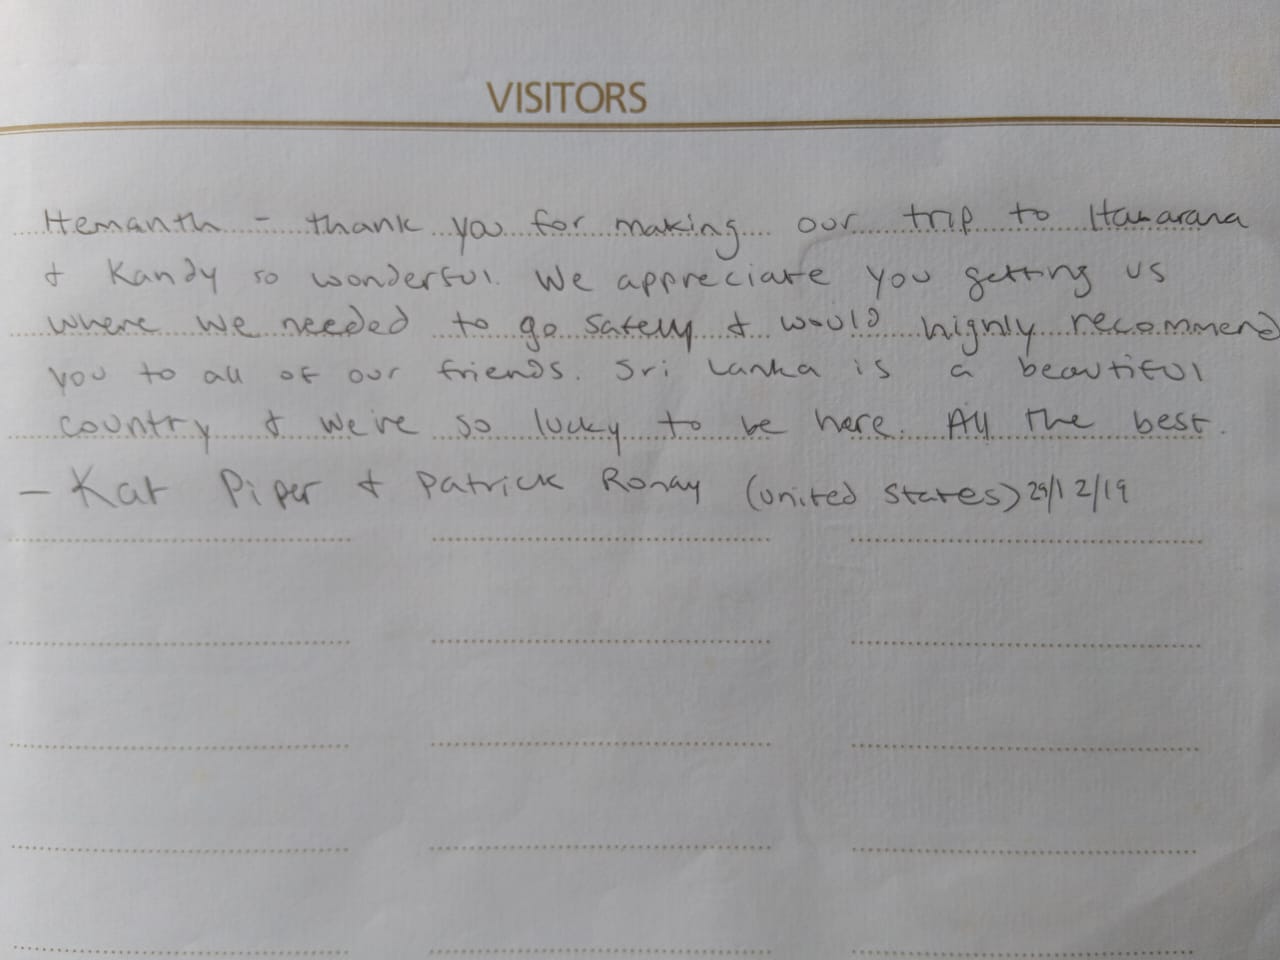 VISITORS
Hemanth - thank you for making our trip to Habarana
& Kandy so wonderful. We appreciate you getting us
where we needed to go safely & would highly recommend
you to all of our friends. Sri Lanka is a beautiful
country & we're so lucky to be here. All the best.
- Kat Piper & Patrick Ronay (United States) 29/12/19